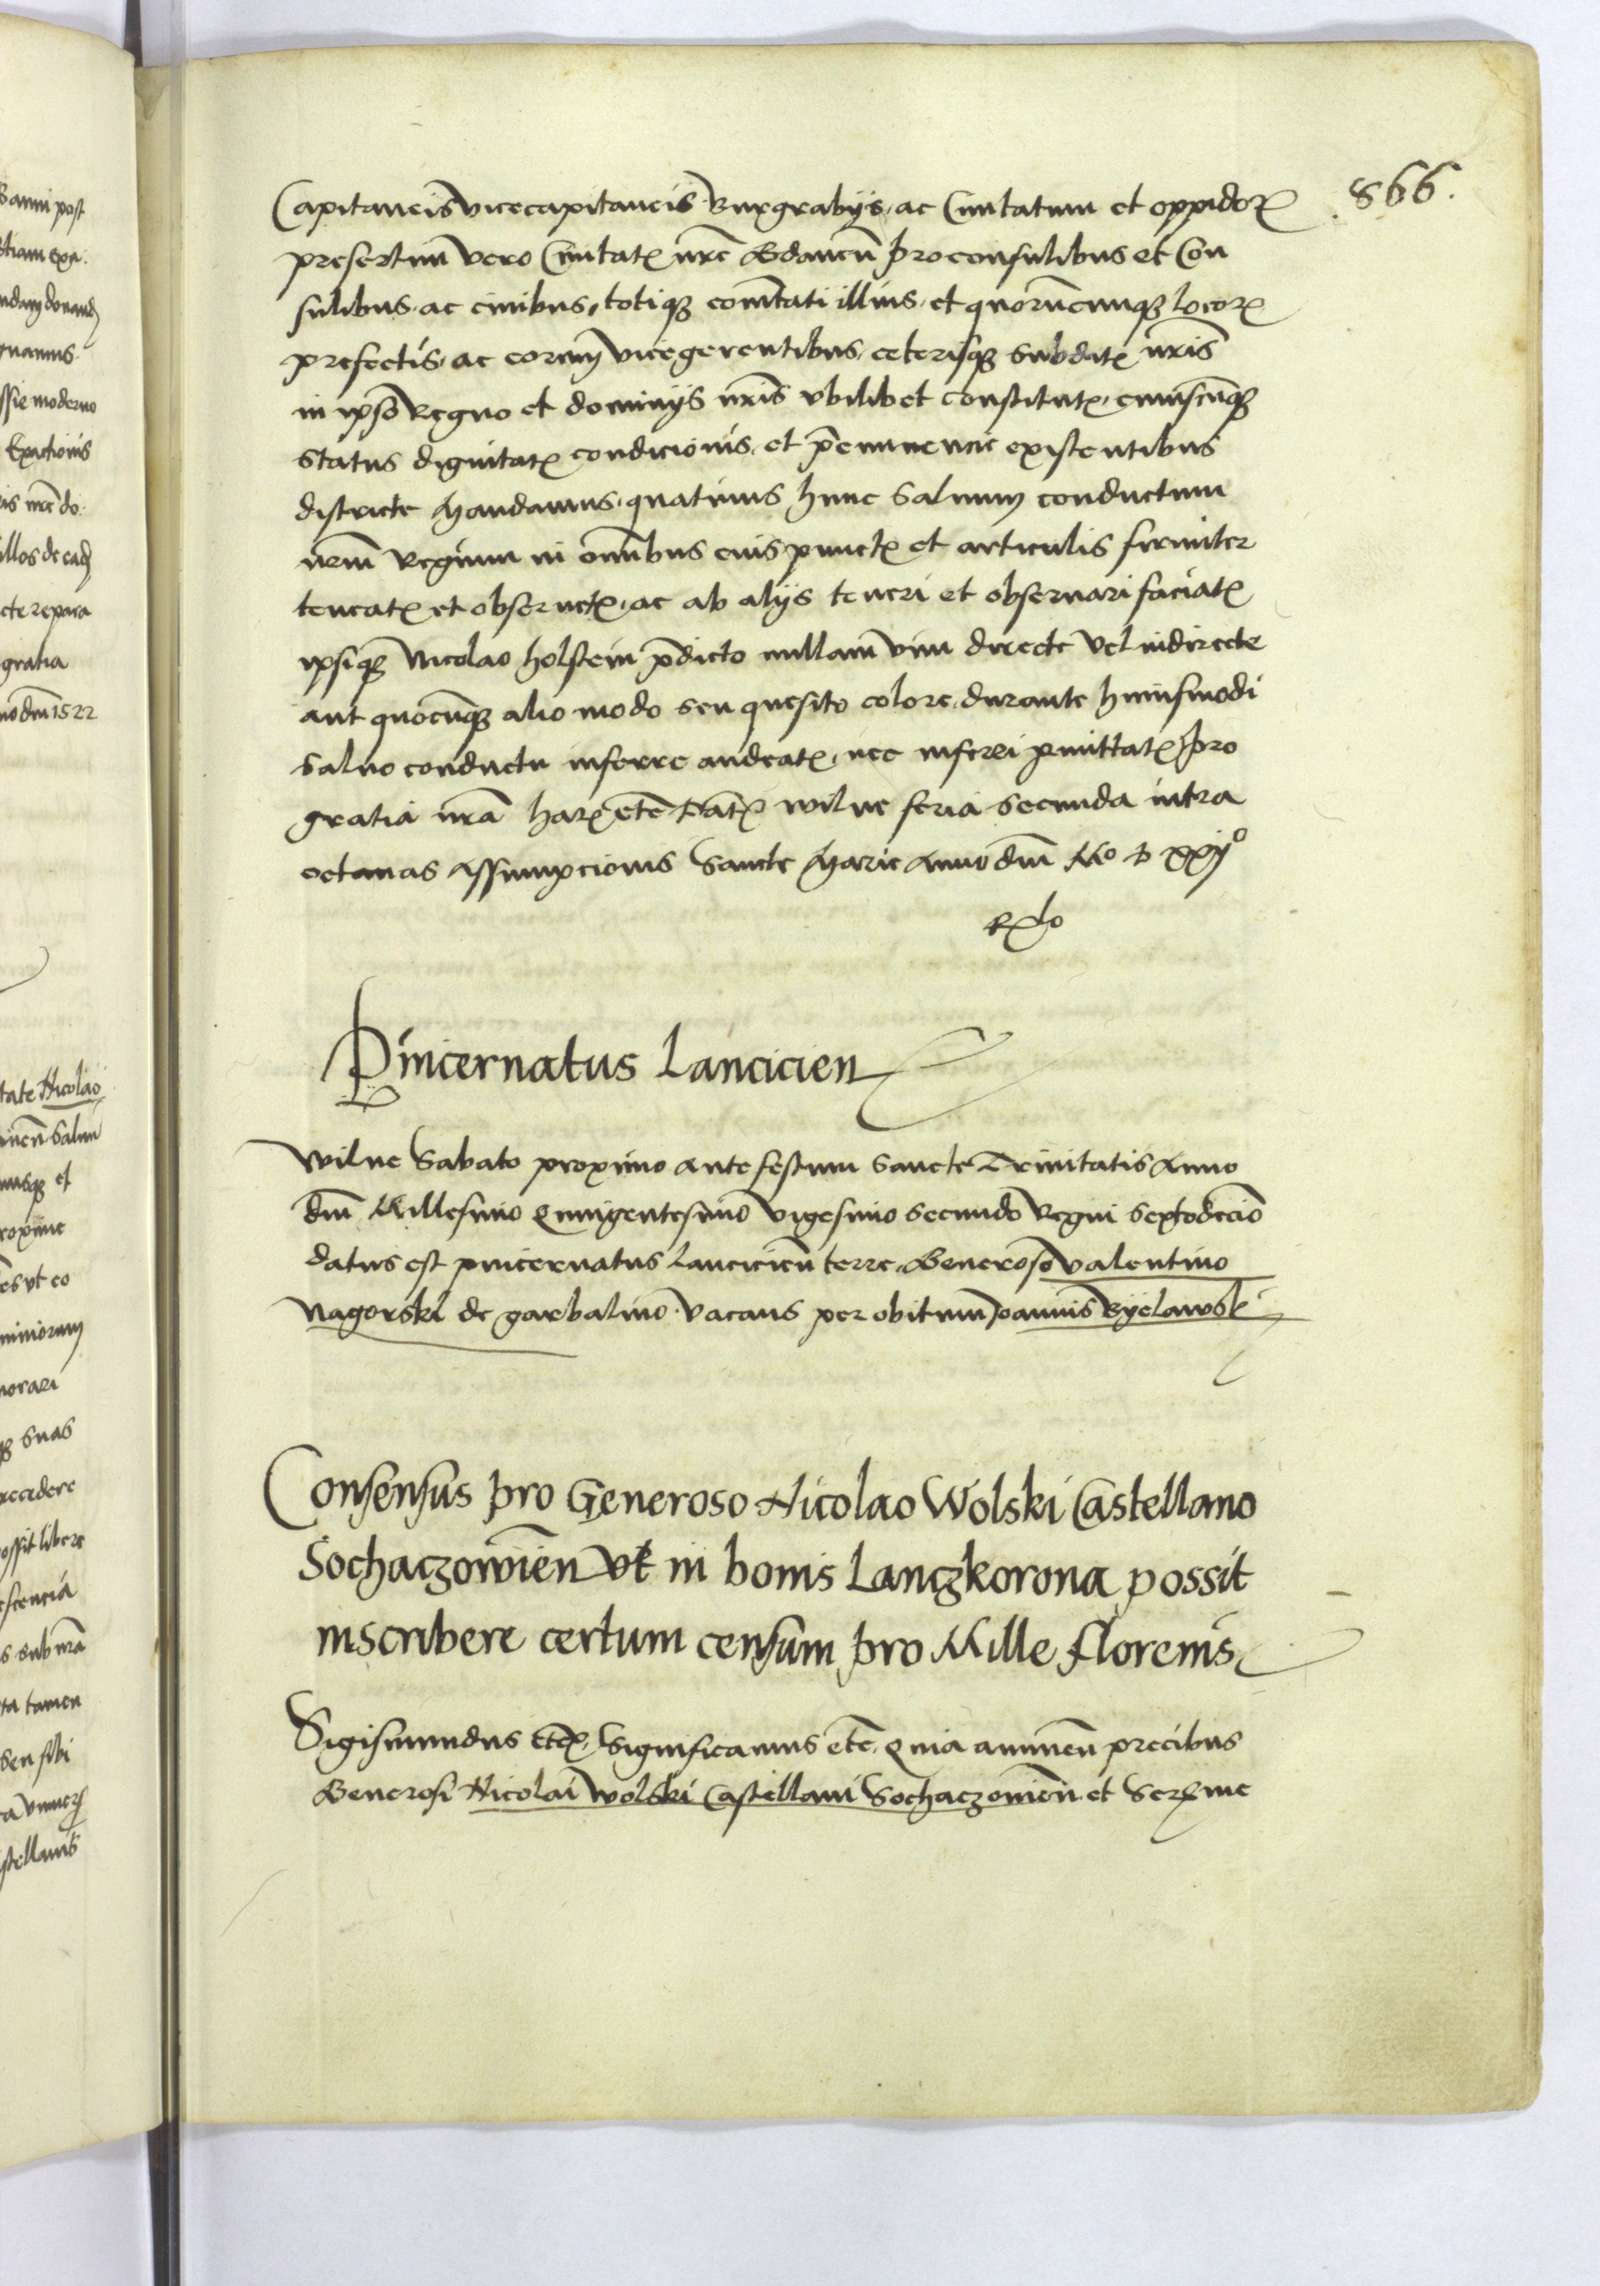 866.
Capitaneis vicecapitaneis Burgrabijs, ac Ciuitatum et oppidoꝝ
presertim vero Ciuitatꝭ nr̄e Gdaneñ proconsulibus et Con
sulibus, ac ciuibus, totiqꝫ com̄itati illius, et quorūcunqꝫ locoꝝ
prefectis, ac eorum vicegerentibus, ceterisqꝫ subditꝭ nr̄is
in ipso Regno et dominijs nr̄is vbilibet constitutꝭ, cuiuscūqꝫ
status dignitatꝭ condicionis, et p̄eminencie existentibus
districte Mandamus, quatinus hunc saluum conductum
nr̄m Regium in om̄ibus eius punctꝭ et articulis firmiter
teneatꝭ et obseruetꝭ, ac ab alijs teneri et obseruari faciatꝭ
ipsiqꝫ Nicolao holstein p̄dicto nullam vim directe vel indirecte
aut quocūqꝫ alio modo seu quesito colore, durante huiusmodi
saluo conductu inferre audeatꝭ, nec inferri p̱mittatꝭ, pro
gratia nr̄a harꝝ etc̄ Datꝭ wilne feria secunda intra
octauas Assumpcionis Sancte Marie Anno dn̄i Mo D xxijº
Rx̱lo
Pincernatus Lancicien
wilne Sabato proximo ante festum Sancte Trinitatis Anno
dn̄i Millesimo Quingentesimo vigesimo secundo Regni septodecīo
datus est pincernatus Lancicieñ terre, Generoso valentino
Nagorski de garbalino. vacans per obitum Joannis Byelawsk
Consensus pro Generoso Nicolao Wolski Castellano
Sochaczowieñ vt in bonis Lanczkorona possit
inscribere certum censum pro Mille florenis
Sigismundus etcꝭ, Significamus etc̄, Quia annueñ precibus
Generosi Nicolai wolski Castellani Sochaczouieñ et Serꝭme
B anni post
ndum donandꝭ
gnamus
ssie moderno
Exactionis
is nr̄e do
illos de eadꝭ
cte repara
gratia
no dn̄i 1522
tate Nicolao
neñ saluu
usqꝫ et
roxime
es vt eo
miniorum
morari
qꝫ suas
recedere
ossit libere
escencia
s sub nr̄a
ta tamen
seu sibi
stellanis